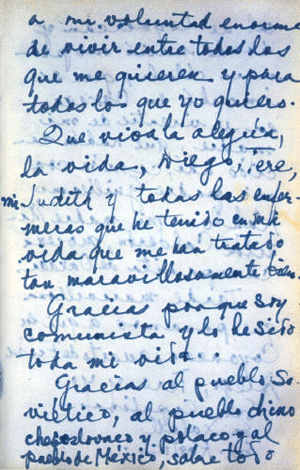 a mi voluntad enorme
de vivir entre todos los
que me quieren y para
todos los que yo quiero.
Que viva la alegría,
la vida, Diego, Tere,
mi Judith y todas las enfer-
meras que he tenido en mi
vida que me han tratado
tan maravillosamente bien
Gracias porque soy
comunista y lo he sido
toda mi vida.
Gracias al pueblo So
viético, al pueblo chino
checoslovaco y polaco y al
pueblo de México, sobre todo